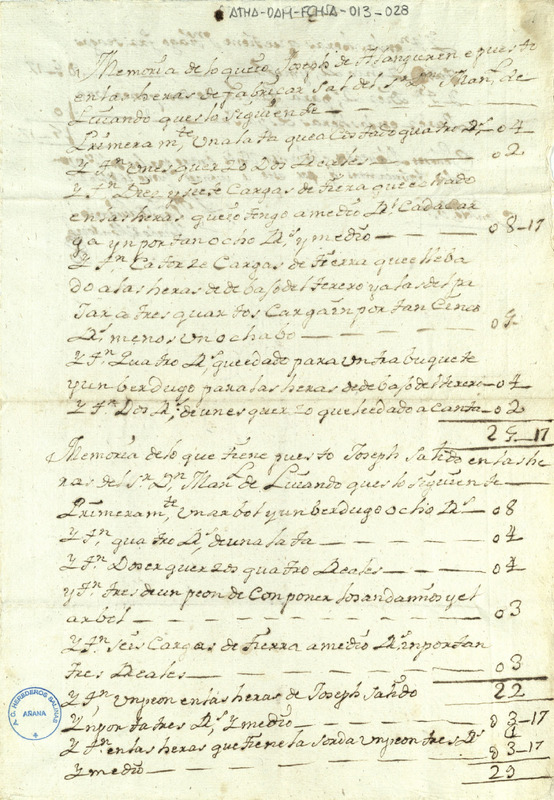 ATHA-DAH-FCHSA-013-028
Memoria de lo que io Joseph de Ilanguren e puesto
en las heras de fabricar Sal del Sr Dn Manl de
Luiando que es lo siguiente
Primeramte Una lata que a Costado quatro Rs 04
Y Itn Un esquerzo Dos Reales 02
Y Itn Diez y siete Cargas de tierra que e echado
en las heras que io tengo a medio Rl Cada Car
ga ynportan ocho Rs y medio 08-17
Y Itn Catorze Cargas de tierra que e lleba
do a las heras de de bajo del terero y a las del pi
a tres quartos Carga inportan Cinco
Rs menos un ochabo 05
Y Itn Quatro Rs que e dado para un trabuquete
y un berdugo para las heras de de bajo del terero 04
Y Itn Dos Rs de un esquerzo que le e dado a Canta 02
25 17
Memoria de lo que tiene puesto Joseph Salido en las he
ras del Sr Dn Manl de Luiando que es lo siguiente
Primeramte Un arbol y un berdugo ocho Rs 08
Y Itn quatro Rs de una lata 04
Y Itn Dos esquerzos quatro Reales 04
Y Itn tres de un peon de Conponer los andamios y el
arbol 03
Y Itn seis Cargas de tierra a medio Rl inportan
tres Reales 03
Y Itn un peon en las heras de Joseph Salido 22
Ynporta tres Rs Y medio 03-17
Y Itn en las heras que tiene la sorda un peon tres Rs 03-17
Y medio 29
A.C. HEREDEROS SALINAS
AÑANA